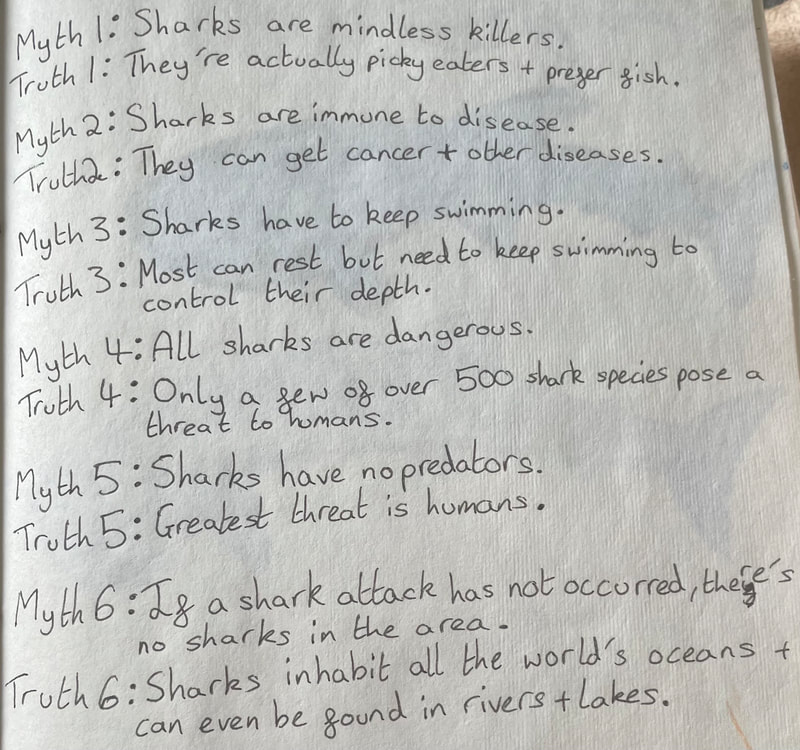 Myth 1: Sharks are mindless killers.
Truth 1: They're actually picky eaters + prefer fish.
Myth 2: Sharks are immune to disease.
Truth 2: They can get cancer + other diseases.
Myth 3: Sharks have to keep swimming.
Truth 3: Most can rest but need to keep swimming to
control their depth.
Myth 4: All sharks are dangerous.
Truth 4: Only a few of over 500 shark species pose a
threat to humans.
Myth 5: Sharks have no predators.
Truth 5: Greatest threat is humans.
Myth 6: If a shark attack has not occurred, there's
no sharks in the area.
Truth 6: Sharks inhabit all the world's oceans +
can even be found in rivers + lakes.